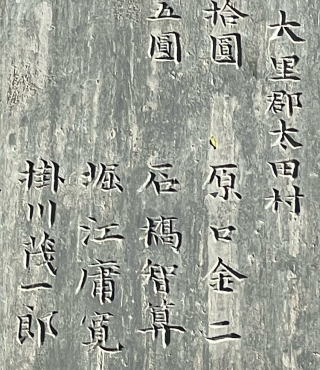 大里郡太田村
拾圓 原口金二
五圓 石橋智算
堀江庸寛
掛川茂一郎